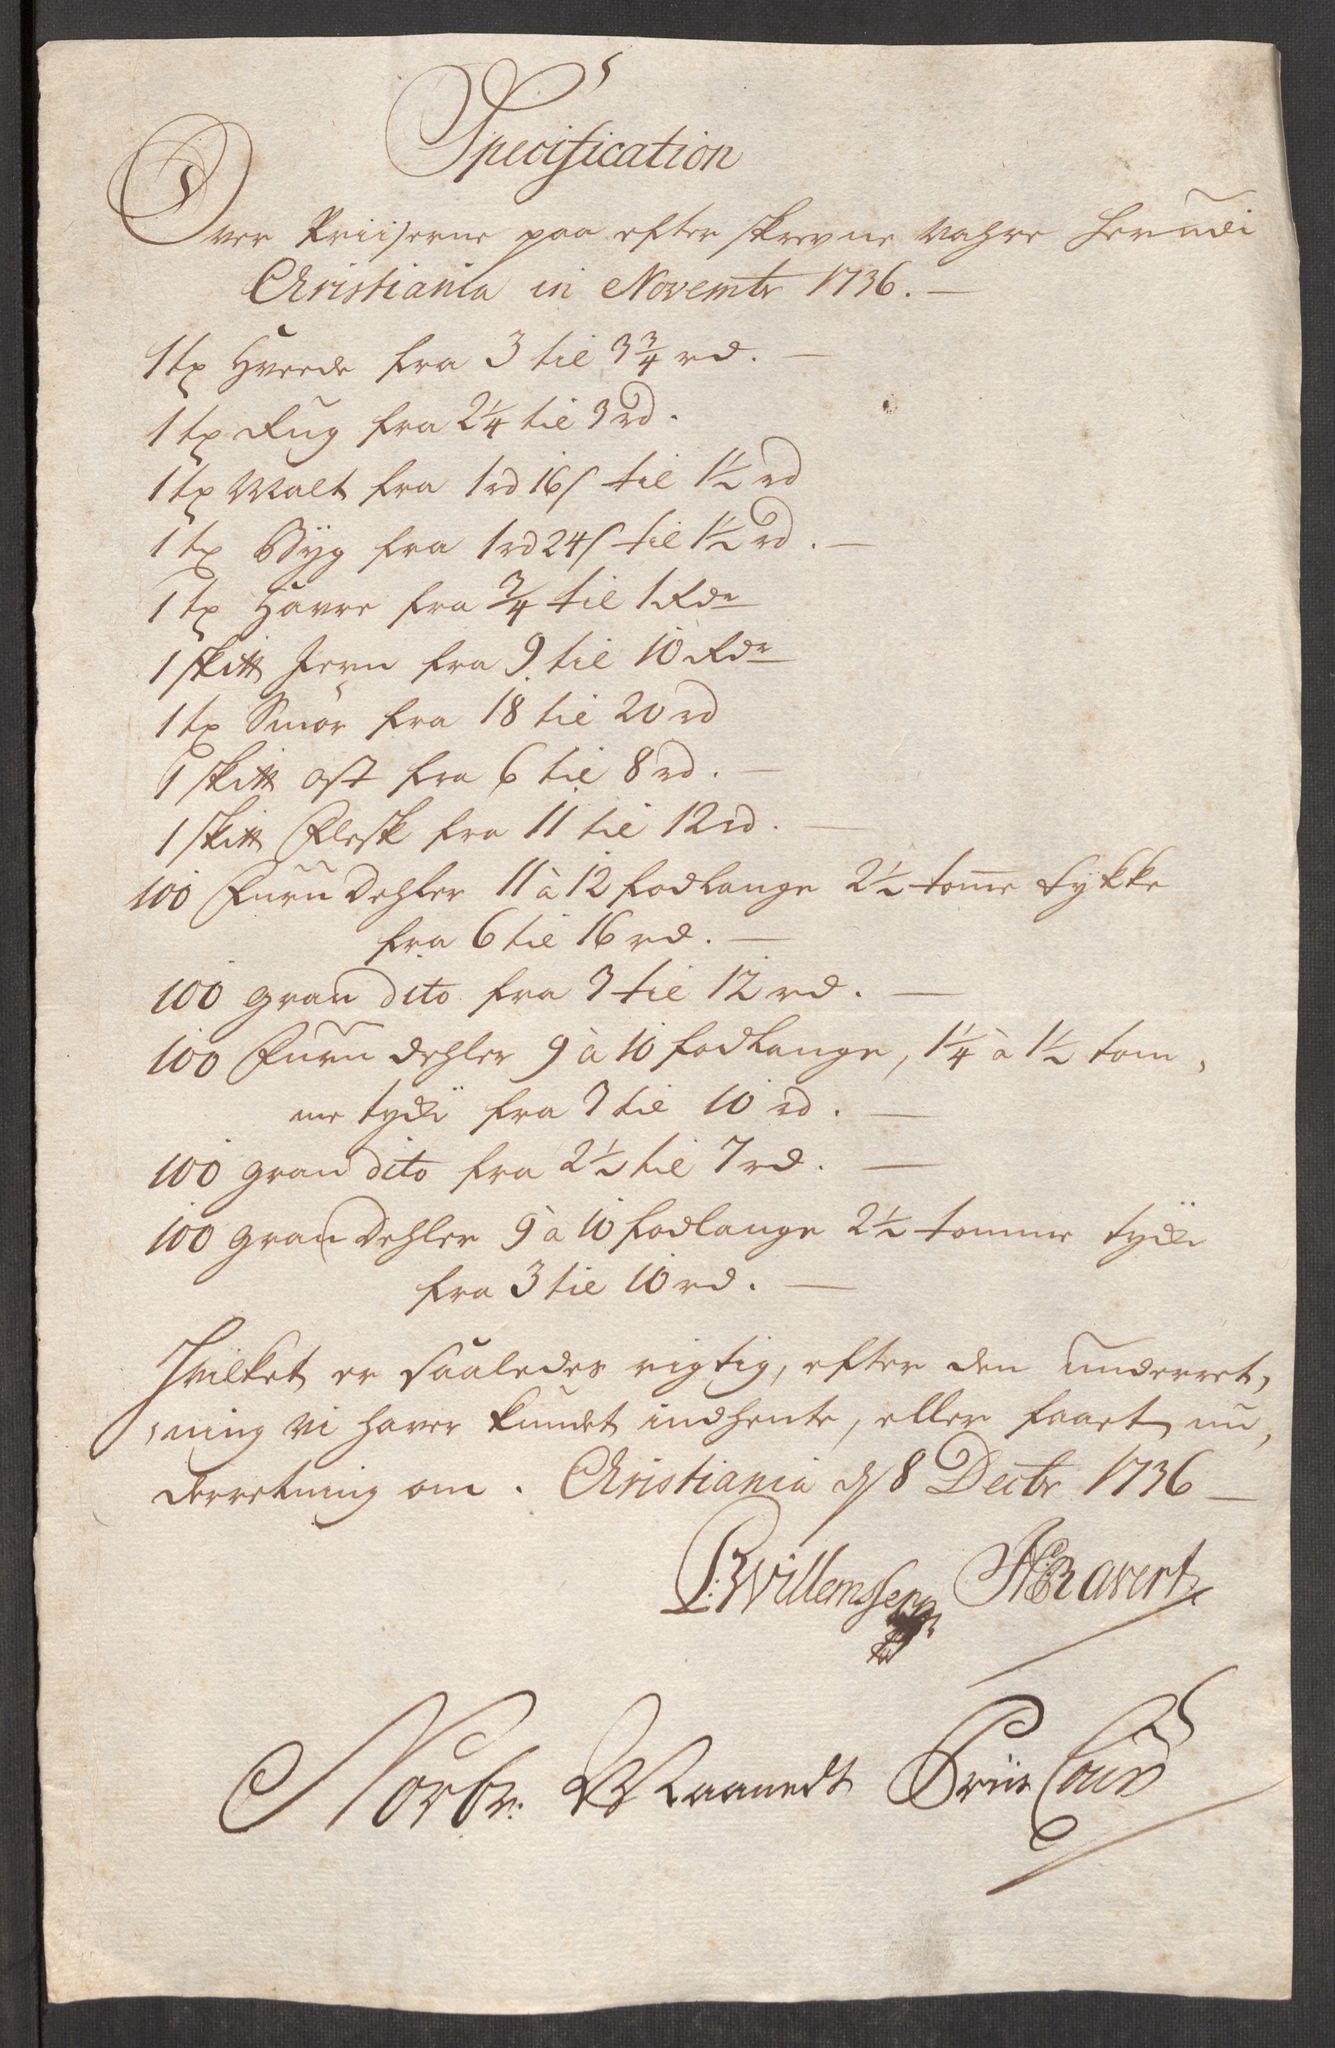 Specification
Over Priiserne paa efter skrevne Vahre herudi
Christiania in Novembr 1736.
1 tø Hvede fra 3 til 3 3/4 rd.
1 tø Rug fra 2 1/4 til 3 rd.
1 tø Malt fra 1 rd 16 s til 1 1/2 rd
1 tø Byg fra 1 rd 24 s til 1 1/2 rd.
1 tø Havre fra 3/4 til 1 Rdr
1 skitt Jern fra 9 til 10 Rdr
1 tø Smør fra 18 til 20 rd
1 skitt Ost fra 6 til 8 rd.
1 skitt Flesk fra 11 til 12 rd.
100 Furu Dehler 11 à 12 fod lange 2 1/2 tome tykke
fra 6 til 16 rd.
100 gran dito fra 3 til 12 rd.
100 Furu dehler 9 à 10 fod lange, 1 1/4 à 1 1/2 tom,
me tyke fra 3 til 10 rd.
100 gran dito fra 2 1/2 til 7 rd.
100 gran Dehler 9 à 10 fod lange 2 1/2 tomme tyke
fra 3 til 10 rd.
Hvilket er saaledes rigtig, efter den underret,
ning vi haver kundet indhente, eller faaet un,
derretning om. Christiania d 8 Decbr 1736
Willemssen Ravert
Novbr: Maanedt Priis Cour